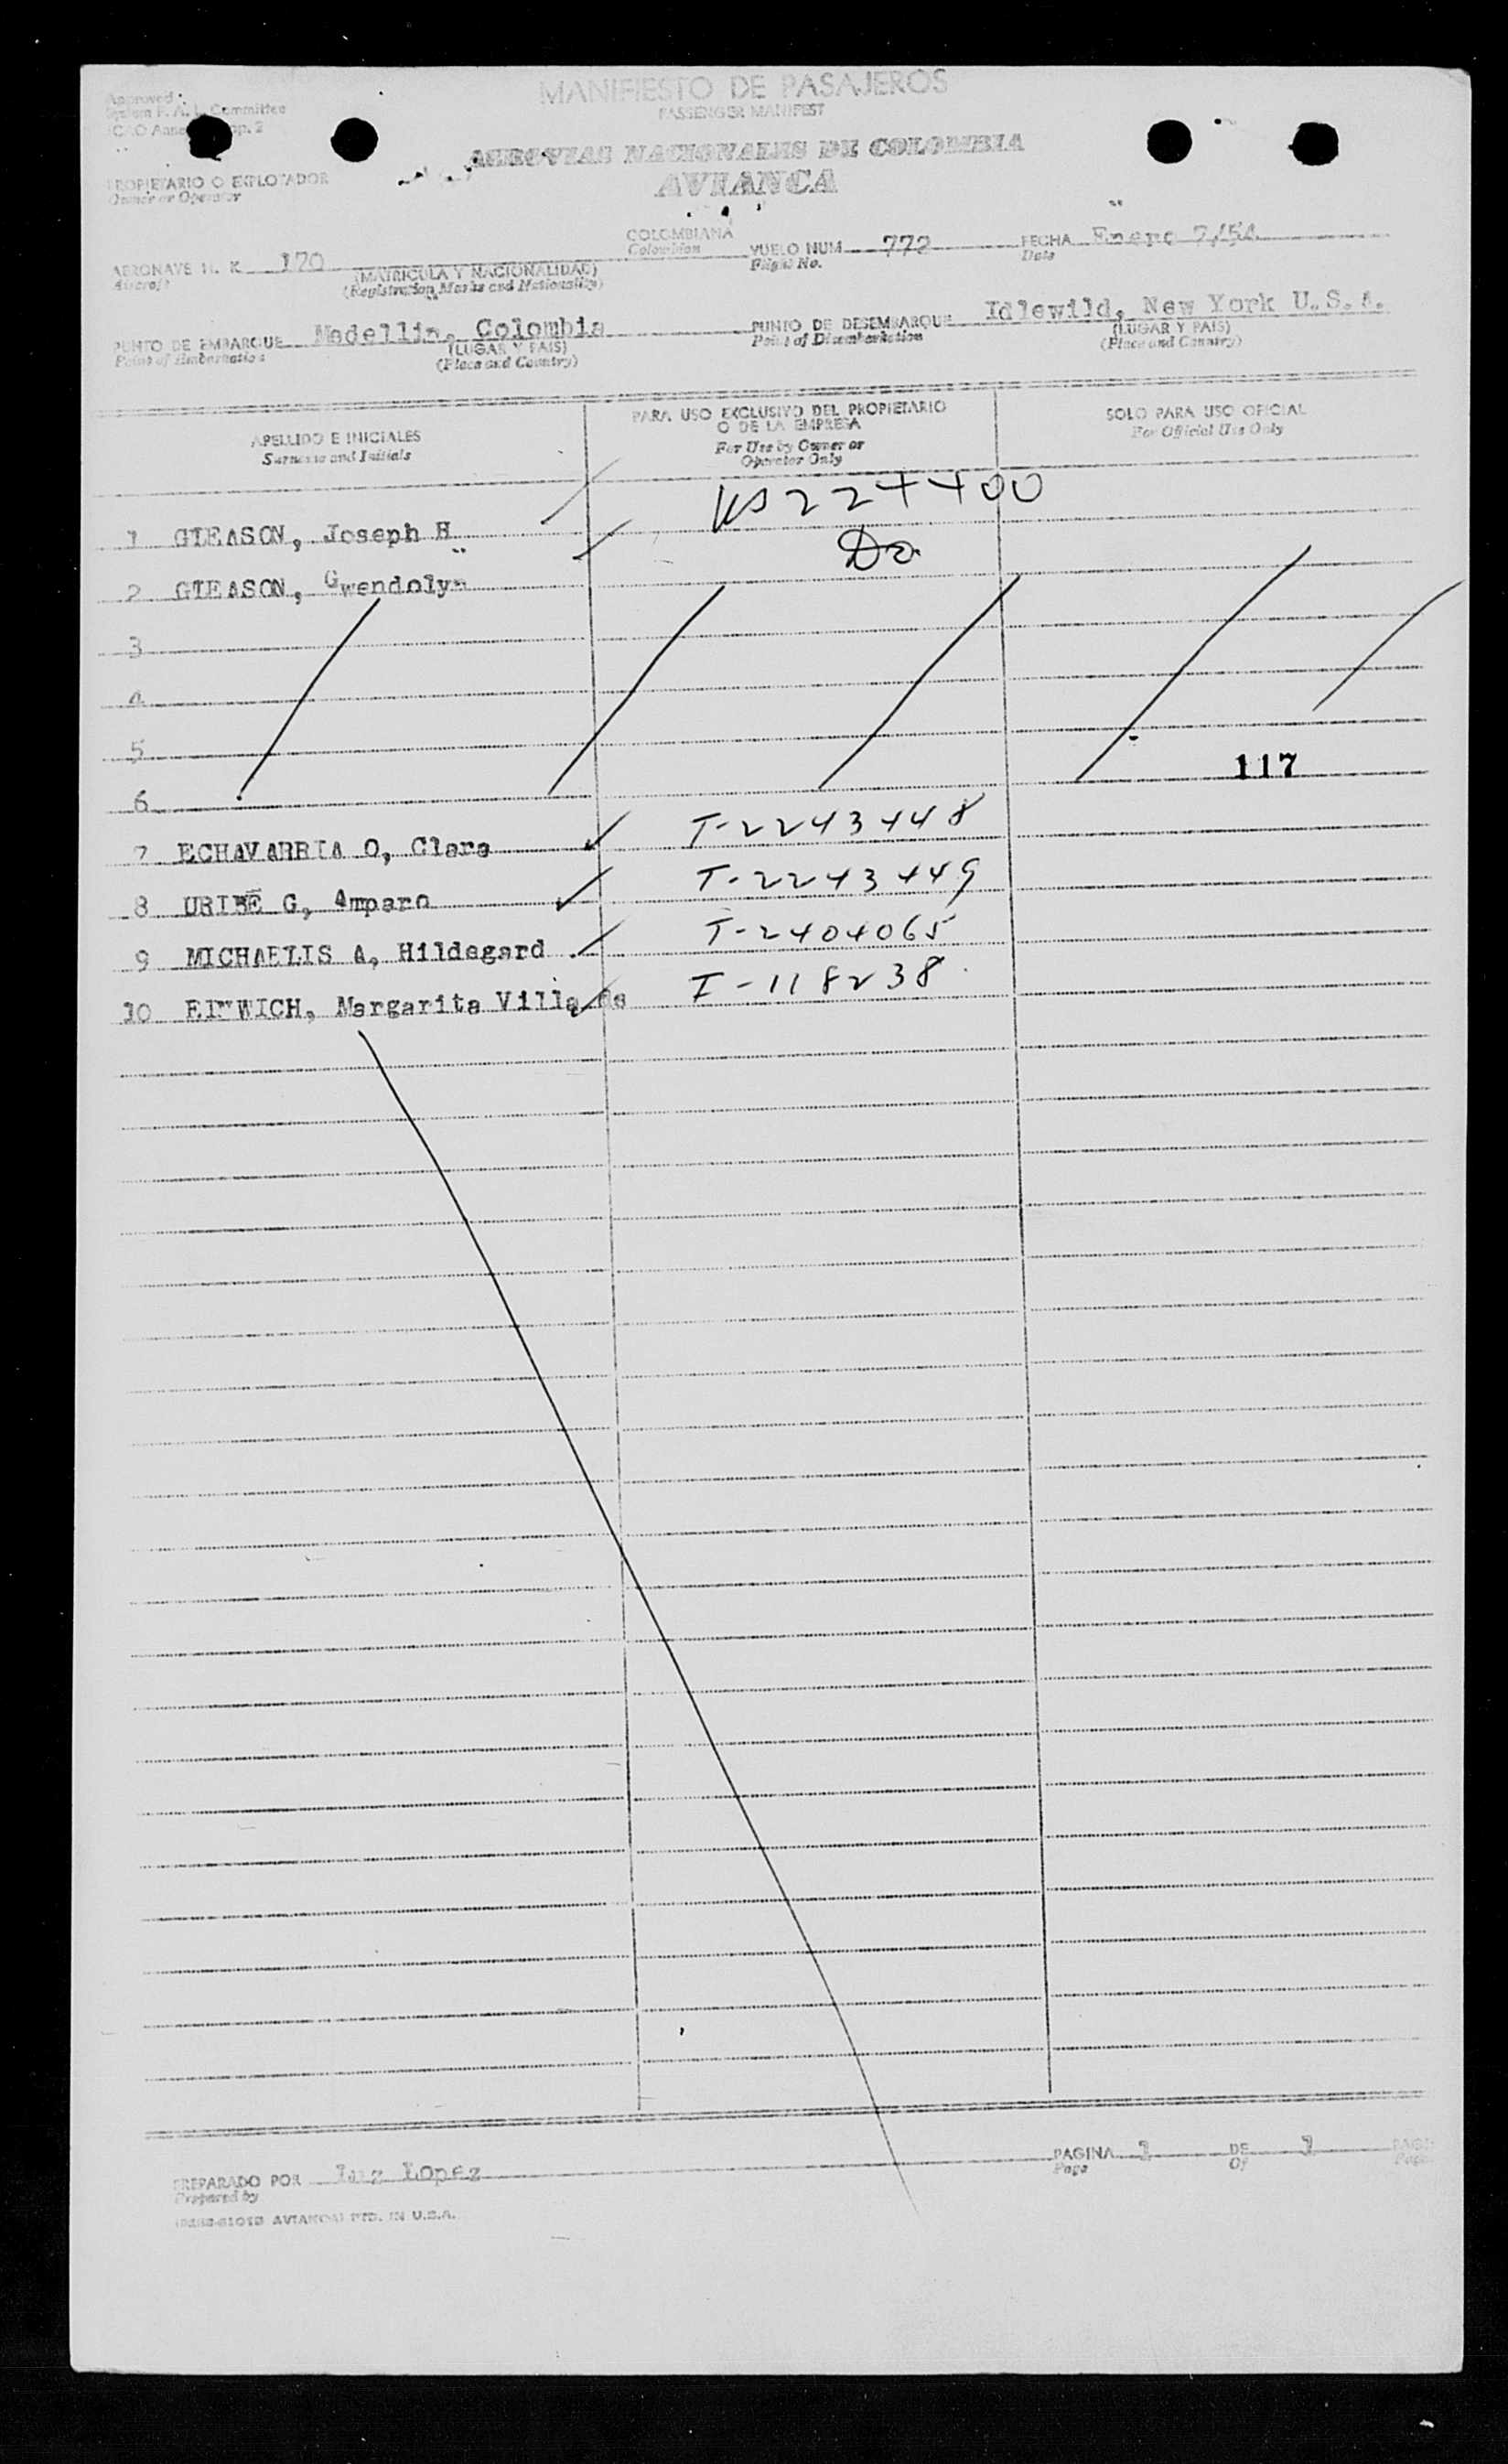 MANIFIESTO DE PASAJEROS
PASSENGER MANIFEST
Approved
System F. A. L. Committee
ICAO Annex p. 2
AEROVIAS NACIONALES DE COLOMBIA
AVIANCA
PROPIETARIO O EXPLOTADOR
Owner or Operator
COLOMBIANA
Colombian
AERONAVE H. K 170
Aircraft
(MATRICULA Y NACIONALIDAD)
(Registration Marks and Nationality)
VUELO NUM 772
Flight No.
FECHA Enero 7/54
Date
PUNTO DE EMBARQUE Medellin, Colombia
Point of Embarkation
(LUGAR Y PAIS)
(Place and Country)
PUNTO DE DESEMBARQUE Idlewild, New York U.S.A.
Point of Disembarkation
(LUGAR Y PAIS)
(Place and Country)
APELLIDO E INICIALES
Surname and Initials
PARA USO EXCLUSIVO DEL PROPIETARIO
O DE LA EMPRESA
For Use by Owner or
Operator Only
SOLO PARA USO OFICIAL
For Official Use Only
1 GLEASON, Joseph H 224400
2 GLEASON, Gwendolyn Do
3
4
5
6 117
7 ECHAVARRIA O, Clara T-2243448
8 URIBE G, Amparo T-2243449
9 MICHAELIS A, Hildegard T-2404065
10 Margarita Villa de I-118238
PREPARADO POR Luz Lopez
Prepared by
PAGINA 1 DE 1
Page Of
AVIANCA) PTD. IN U.S.A.